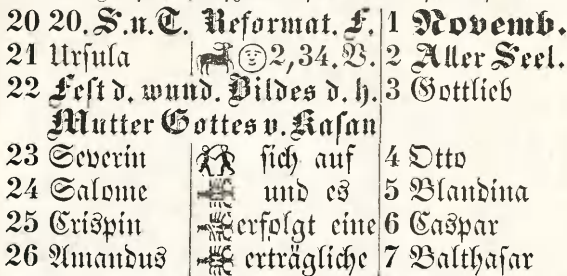 20 20. S. n. T. Reformat. F. 1 Novemb.
21 Ursula 2,34. V. 2 Aller Seel.
22 Fest d. wund. Bildes d. h. 3 Gottlieb
Mutter Gottes v. Kasan
23 Severin sich auf 4 Otto
24 Salome und es 5 Blandina
25 Crispin erfolgt eine 6 Caspar
26 Amandus erträgliche 7 Balthasar